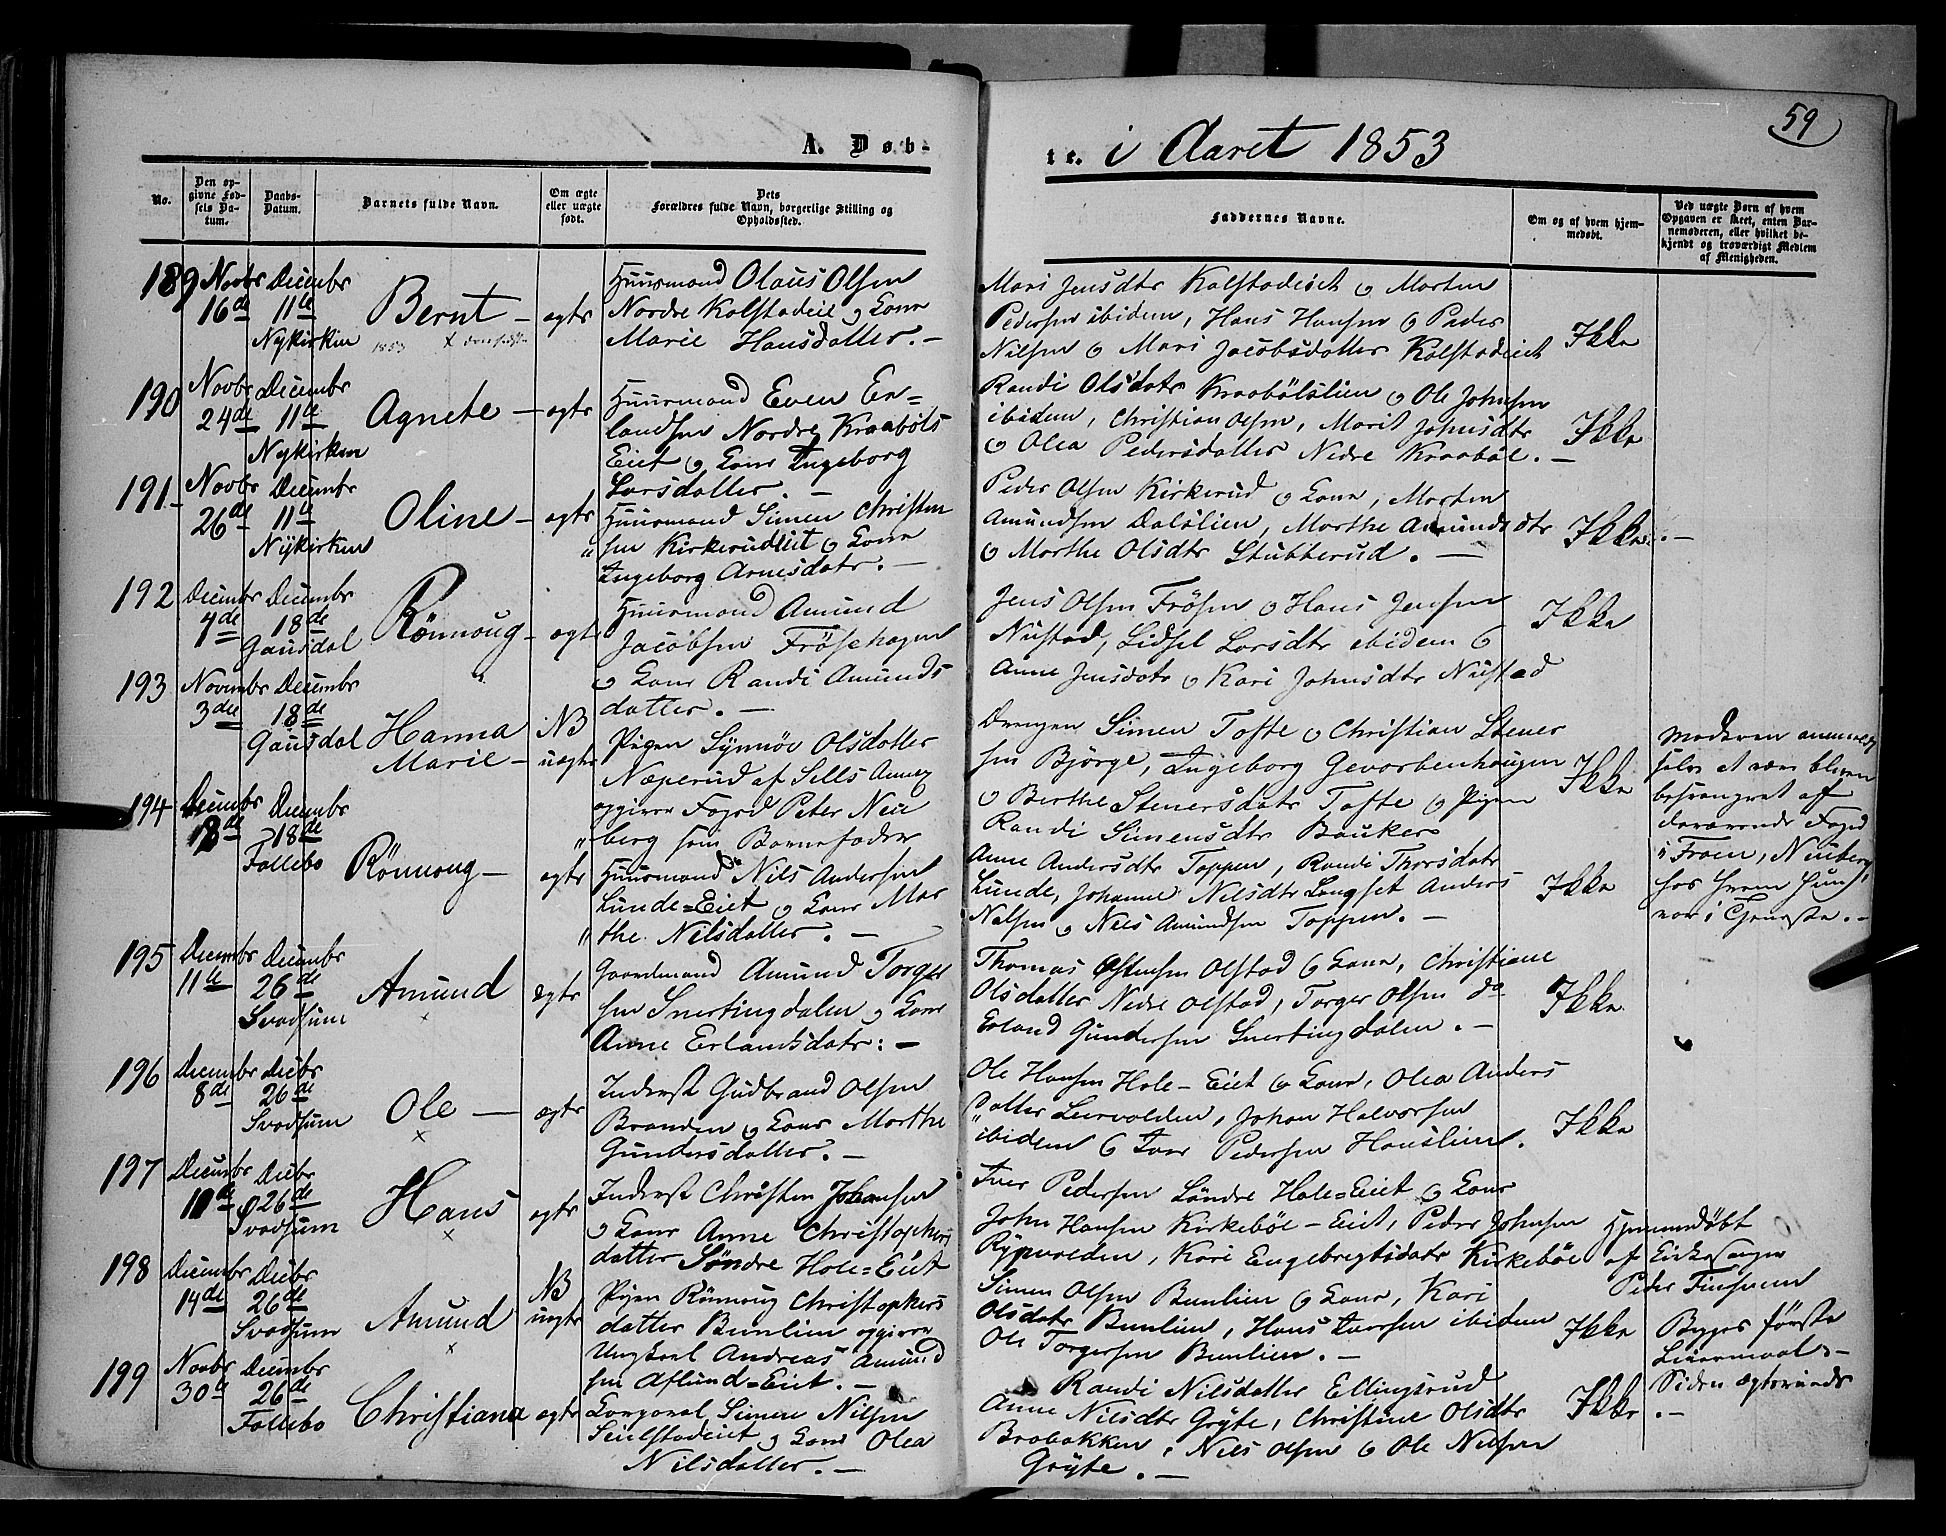 59
A. Døb-
te. i Aaret 1853
No.
Den op-
givne Fød-
sels Da-
tum.
Daabs-
Datum.
Barnets fulde Navn.
Om ægte
eller uægte
født.
Dets
Forældres fulde Navn, borgerlige Stilling og
Opholdssted.
Faddernes Navne.
Om og af hvem hjem-
medøbt.
Ved uægte Børn af hvem
Opgaven er skeet, enten Bar-
nemoderen, eller hvilket be-
kjendt og troværdigt Medlem
af Menigheden.
189 Novbr 16de
Decembr 11te Nykirken
Bernt –
1853
ægte
Huusmand Olaus Olsen
Nordre Kolstadeie og Kone
Marie Hansdatter. –
Mari Jensdtr Kolstadeiet og Morten
Pedersen ibidem, Hans Hansen og Peder
Nilsen og Mari Jacobsdatter Kolstadeiet
Ikke
190 Novbr 24de
Decembr 11te Nykirken
Agnete –
ægte
Huusmand Even Er=
landsen Nordre Kraabøls
Eiet og Kone Ingeborg
Larsdatter. –
Randi Olsdatr Kraabølslien og Ole Johnsen
ibidem, Christian Olsen, Marit Johnsdtr
og Olea Pedersdatter Nedre Kraabøl. –
Ikke
191 Novbr 26de
Decembr 11te Nykirken
Oline –
ægte
Huusmand Simen Christen
" sen Kirkerudeiet og Kone
Ingeborg Arnesdatr. –
Peder Olsen Kirkerud og Kone, Morten
Amundsen Dalslien, Marthe Amundsdtr
og Marthe Olsdtr Stubberud. –
Ikke. –
192 Decembr 4de
Decembr 18de Gausdal
Rönnoug –
ægte
Huusmand Amund
Jacobsen Frösehagen
og Kone Randi Amunds
datter. –
Jens Olsen Frösen og Hans Jensen
Nustad, Lidsel Larsdtr ibidem og
Anne Jensdatr og Kari Johnsdtr Nustad
Ikke
193 Novembr 3die
Decembr 18de Gausdal
Hanna
Marie –
NB
uægte
Pigen Synnöv Olsdatter
Næperud af Sells Annex
opgiver Foged Peter Neu
" berg som Barnefader
Drengen Simen Tofte og Christian Stener
sen Björge, Ingeborg Gevorbenhaugen
og Berthe Stenersdatr Tofte og Pigen
Randi Simensdtr Bauker
Ikke
Moderen anmeldte
selv at være bleven
besvangret af
daværende Foged
i Froen, Neuberg,
hos hvem hun
var i Tjeneste. –
194 Decembr 18de
Decembr 18de Follebo
Rönnoug –
ægte
Huusmand Nils Andersen
Lunde=Eiet og Kone Mar
" the Nilsdatter. –
Anne Andersdtr Toppen, Randi Thorsdatr
Lunde, Johanne Nilsdtr Langset Anders
Nilsen og Niels Amundsen Toppen. –
Ikke
195 Decembr 11te
Decembr 26de Svadsum
Amund
×
ægte
Gaardmand Amund Torger
sen Snertingdalen og Kone
Anne Erlandsdatr: –
Thomas Olsen Olstad og Kone, Christiane
Olsdatter Nedre Olstad, Torger Olsen do
Erland Gundersen Snertingdalen. –
Ikke
196 Decembr 8de
Decbr 26de Svadsum
Ole –
×
ægte
Inderst Gudbrand Olsen
Branden og Kone Marthe
Gundersdatter. –
Ole Hansen Hole-Eiet og Kone, Olea Anders
" datter Leervolden, Johan Halvorsen
ibidem og Iver Pedersen Hauslien.
Ikke
197 Decembr
Decbr 26de Svadsum
Hans
×
ægte
Inderst Christen Johansen
og Kone Anne Christophers
datter Söndre Hole=Eiet
Iver Pedersen Söndre Hole=Eiet og Kone
John Hansen Kirkeböe–Eiet, Peder Johnsen
Rypvolden, Kari Engebregtsdatr Kirkeböe
Hjemmedöbt
af Kirkesanger
Peder Finsveen
198 Decembr 14de
Decbr 26de Svadsum
Amund
×
NB
uægte
Pigen Rönnoug Christophers
datter Bunlien opgiver
Ungkarl Andreas Amund
sen Aflund=Eiet. –
Simen Olsen Bunlien og Kone, Kari
Olsdatr Bunlien, Hans Iversen ibidem
Ole Torgersen Bunlien. –
Ikke
Begges første
Leiermaal. –
Siden ægteviede
199 Novbr 30te
Decembr 26de Follebo
Christiana
ægte
Korporal Simen Nilsen
Seielstadeiet og Kone Olea
Nilsdatter. –
Randi Nilsdatter Ellingsrud
Anne Nilsdtr Gryte, Christine Olsdtr
Brobakken, Nils Olsen og Ole Nilsen
Gryte. –
Ikke. –